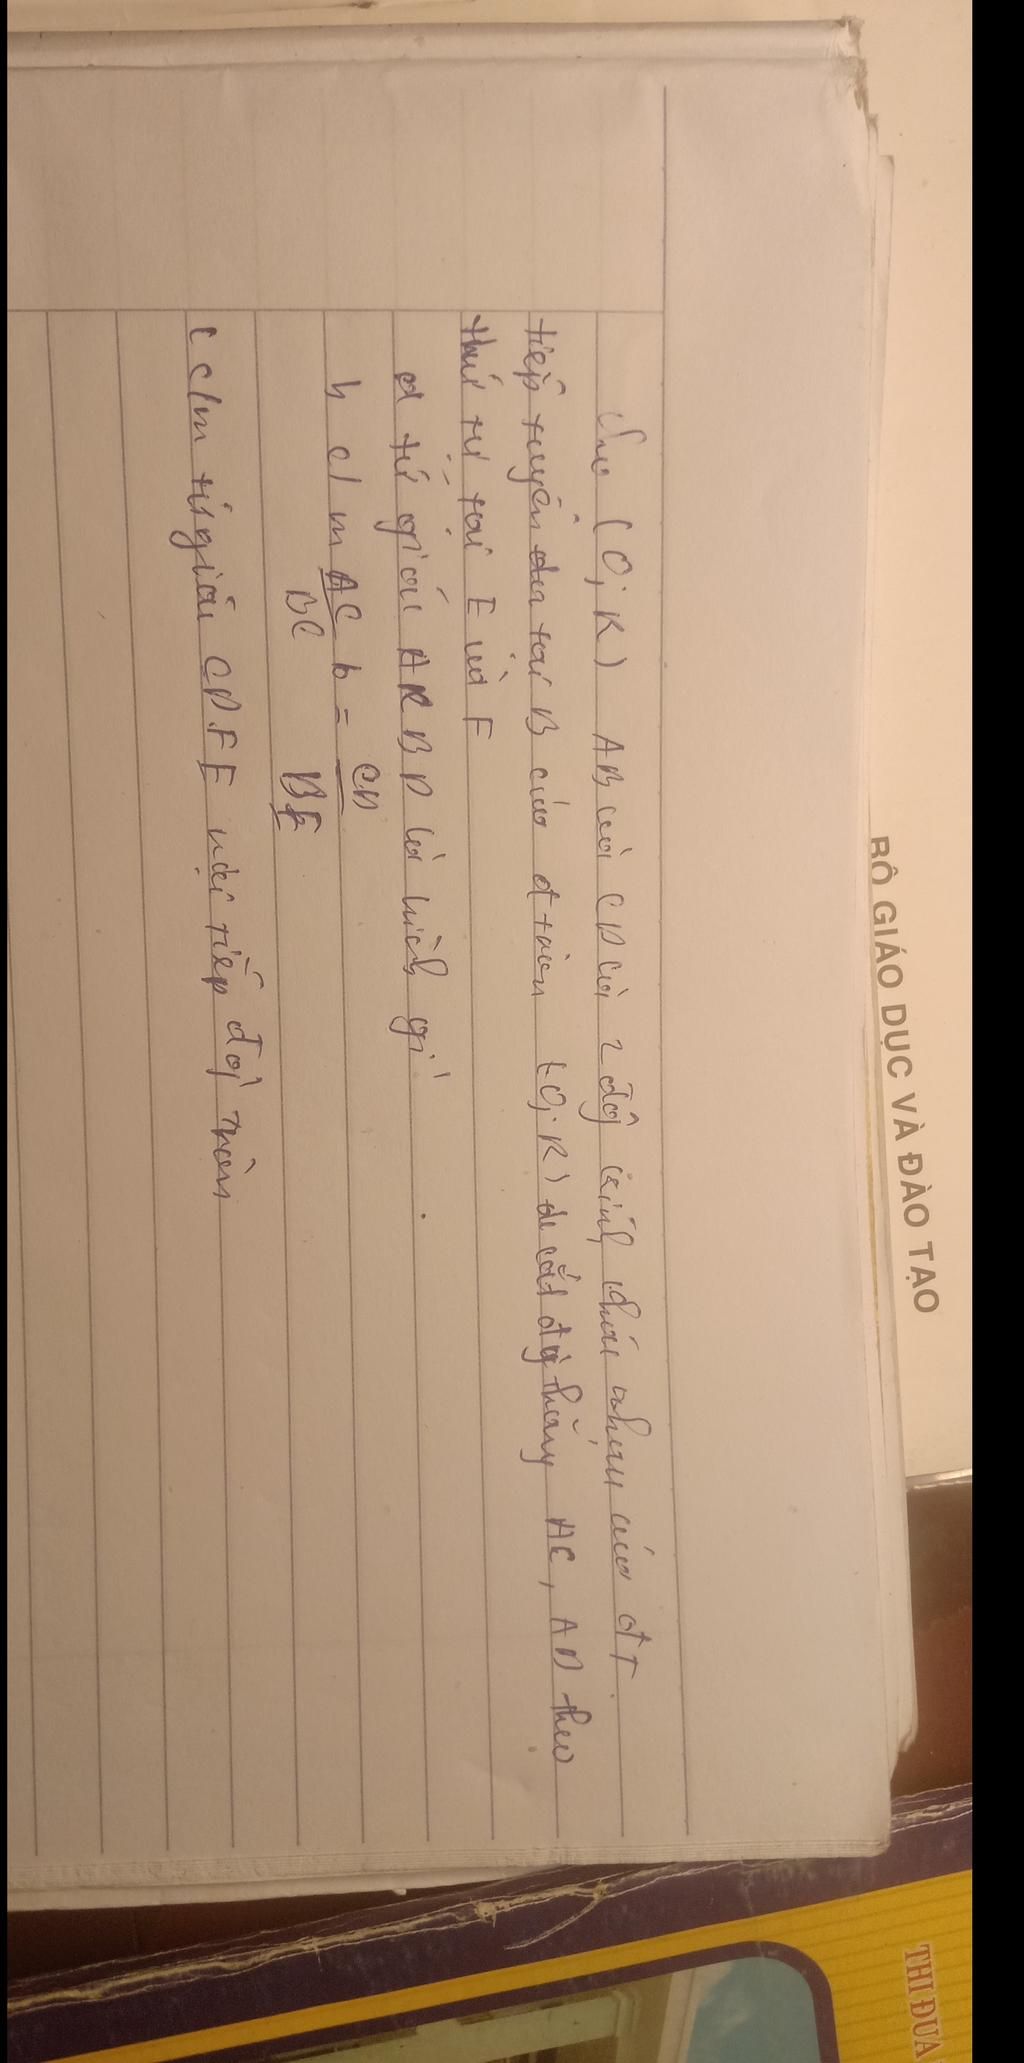 BỘ GIÁO DỤC VÀ ĐÀO TẠO
THI ĐUA
Cho (O; R) AB và CD là 2 đg kính khác nhau của đT
tiếp tuyến tại B của đ tròn (O; R) cắt đg thẳng AC, AD theo
thứ tự tại E và F
a tứ giác ACBD là hình gì
b c/m AC = CD
BC BE
c c/m tứ giác CDFE nội tiếp đg tròn